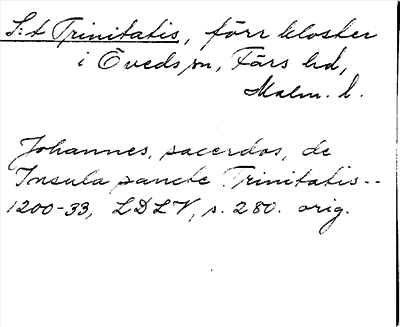 S:t Trinitatis, förr kloster
i Öveds sn, Färs hd,
Malm. l.
Johannes, sacerdos, de
Insula sancte Trinitatis --
1200-33, LDLV, s. 280. orig.